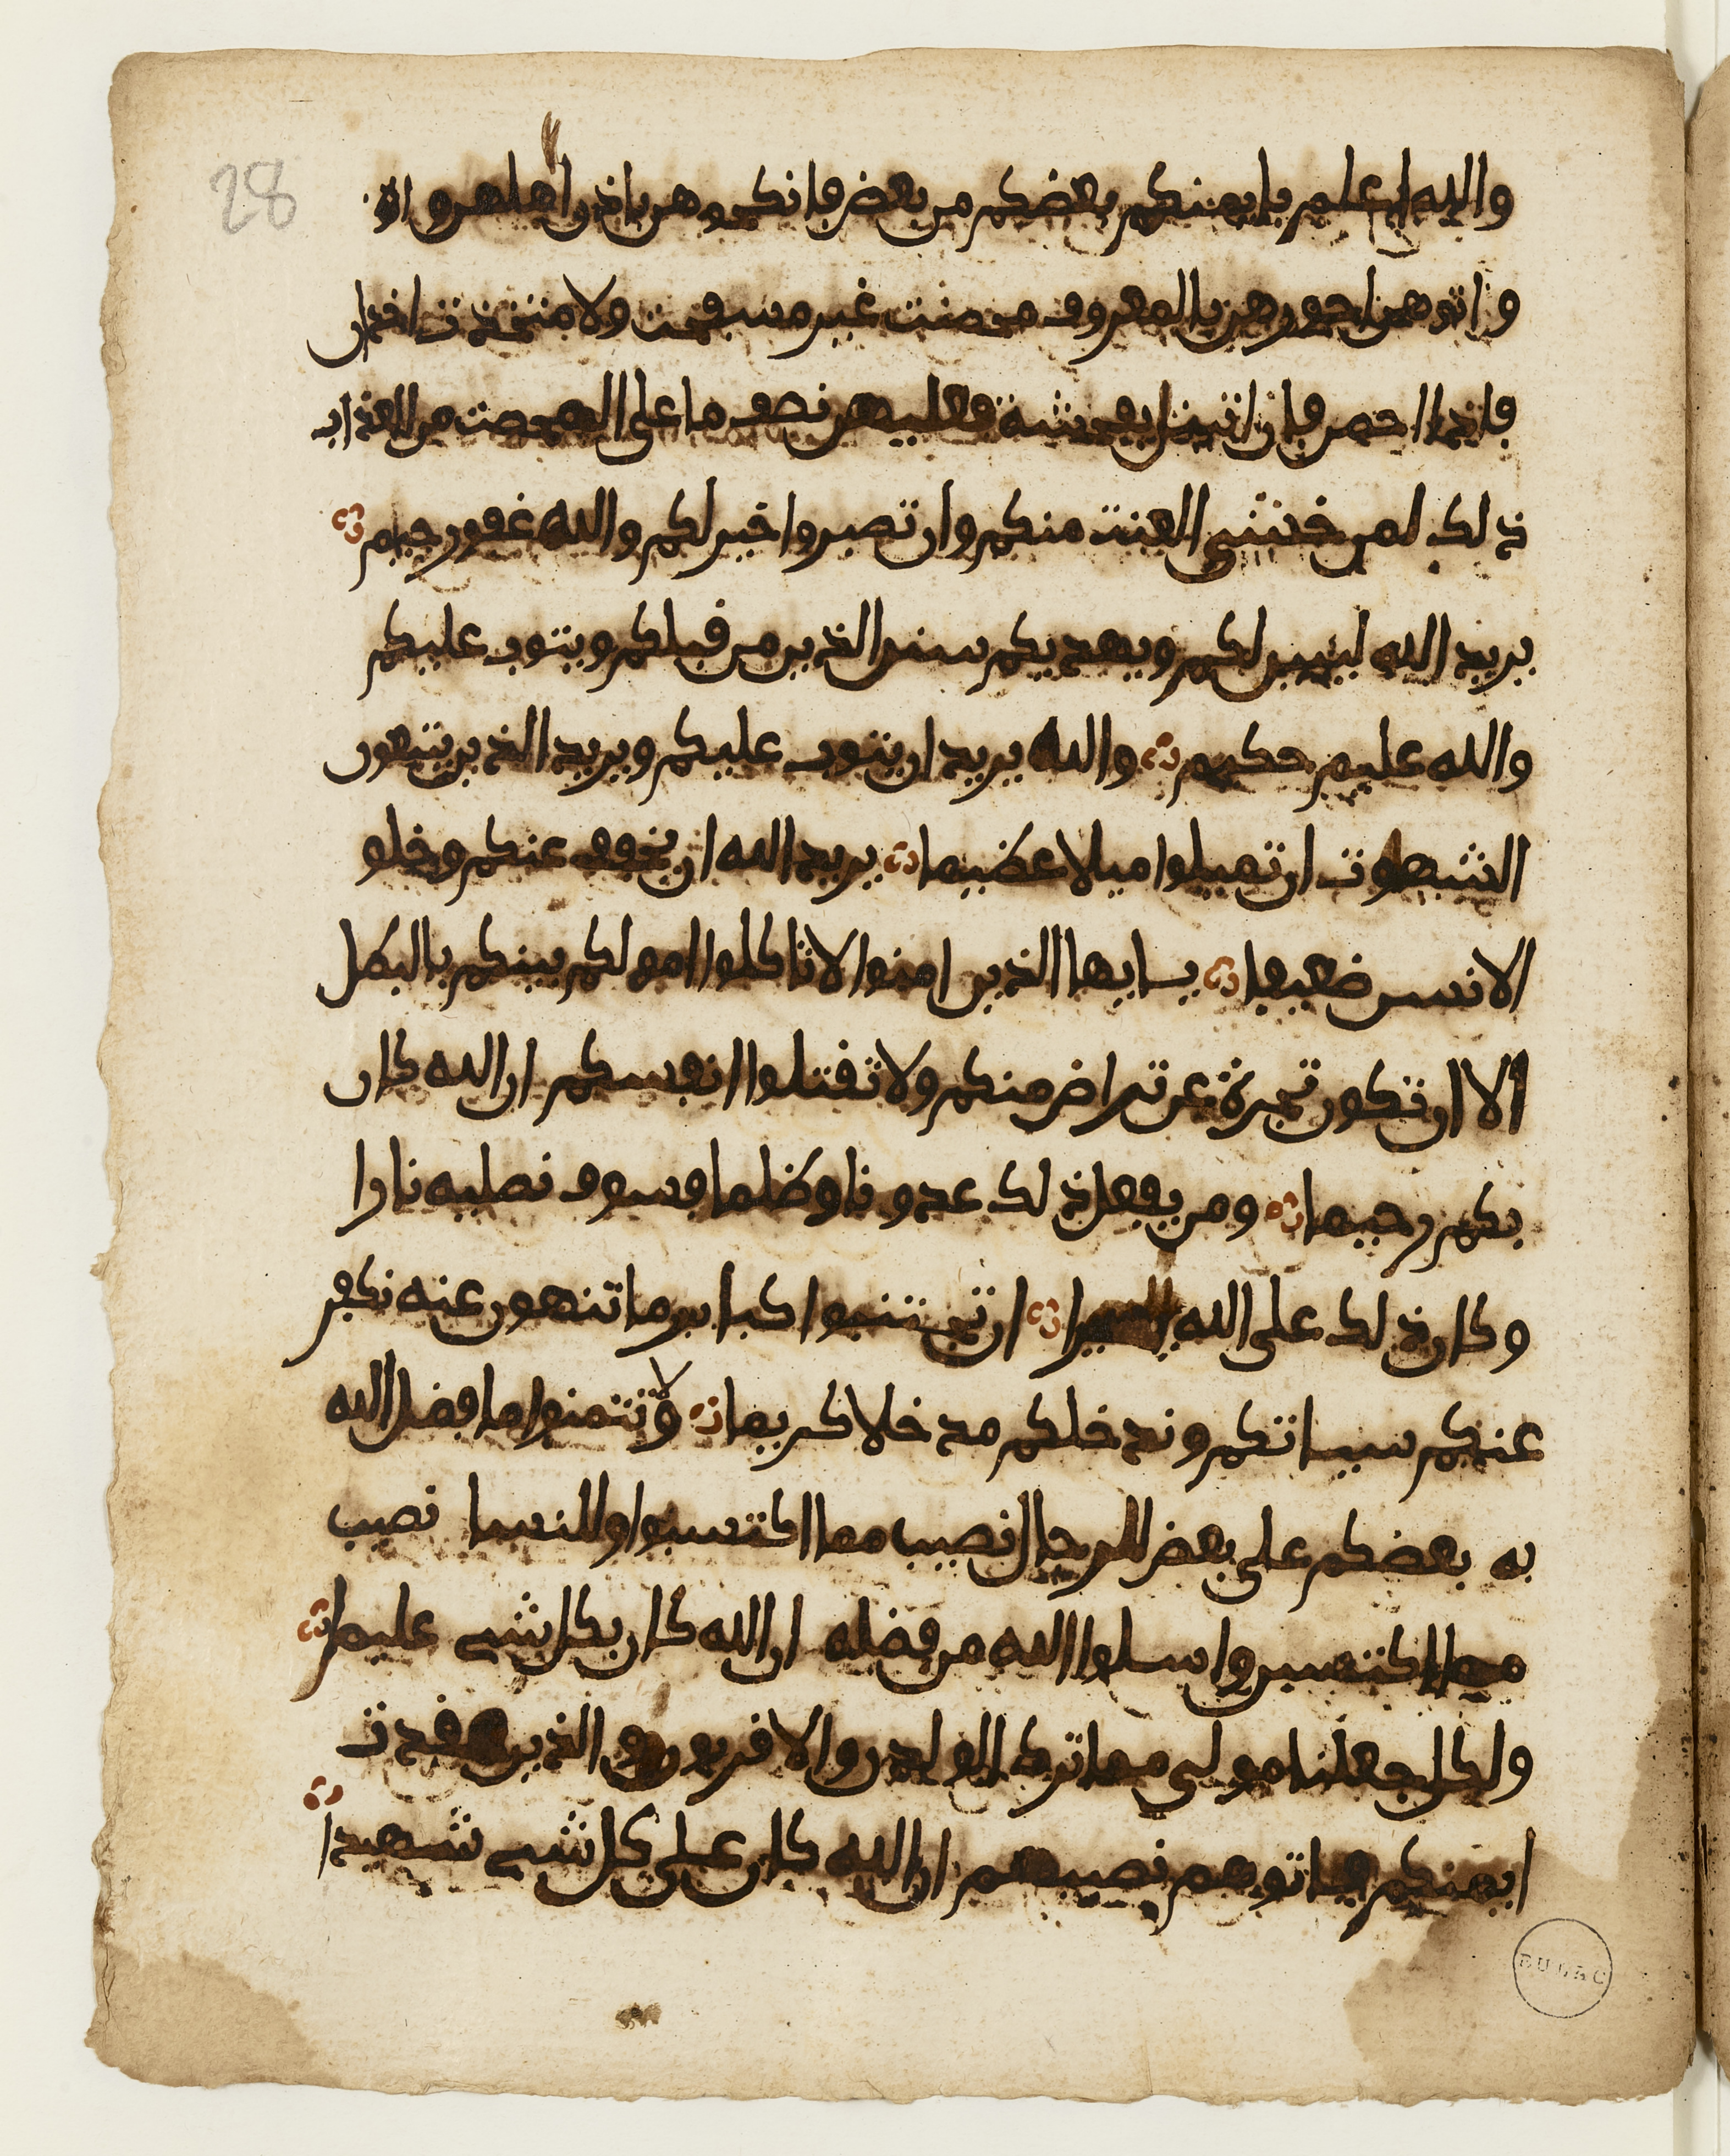 28
والله اعلم بايمنكم بعضكم من بعض فانكحوهن باذن اهلهن واة
واتوهن اجورهن بالمعروف محصنت غير مسفحت ولا متخذت اخدان
فاذا احصن فان اتين بفحشة فعليهن نصف ما على المحصنت من العذاب
ذلك لمن خشي العنت منكم وان تصبروا خير لكم والله غفور رحيم
يريد الله ليبين لكم ويهديكم سنن الذين من قبلكم ويتوب عليكم
والله عليم حكيم والله يريد ان يتوب عليكم ويريد الذين يتبعون
الشهوت ان تميلوا ميلا عظيما يريد الله ان يخفف عنكم وخلو
الانسن ضعيفا يايها الذين امنوا لا تاكلوا امولكم بينكم بالبطل
الا ان تكون تجرة عن تراض منكم ولا تقتلوا انفسكم ان الله كان
بكم رحيما ومن يفعل ذلك عدونا وظلما فسوف نصليه نارا
وكان ذلك على الله يسيرا ان تجتنبوا كباير ما تنهون عنه نكفر
عنكم سياتكم وندخلكم مدخلا كريما ولا تتمنوا ما فضل الله
به بعضكم على بعض للرجال نصيب مما اكتسبوا وللنسا نصيب
مما اكتسبن واسلوا الله من فضله ان الله كان بكل شي عليما
ولكل جعلنا مولي مما ترك الولدن والاقربون والذين عقدت
ايمنكم فاتوهم نصيبهم ان الله كان على كل شي شهيدا
BULAC